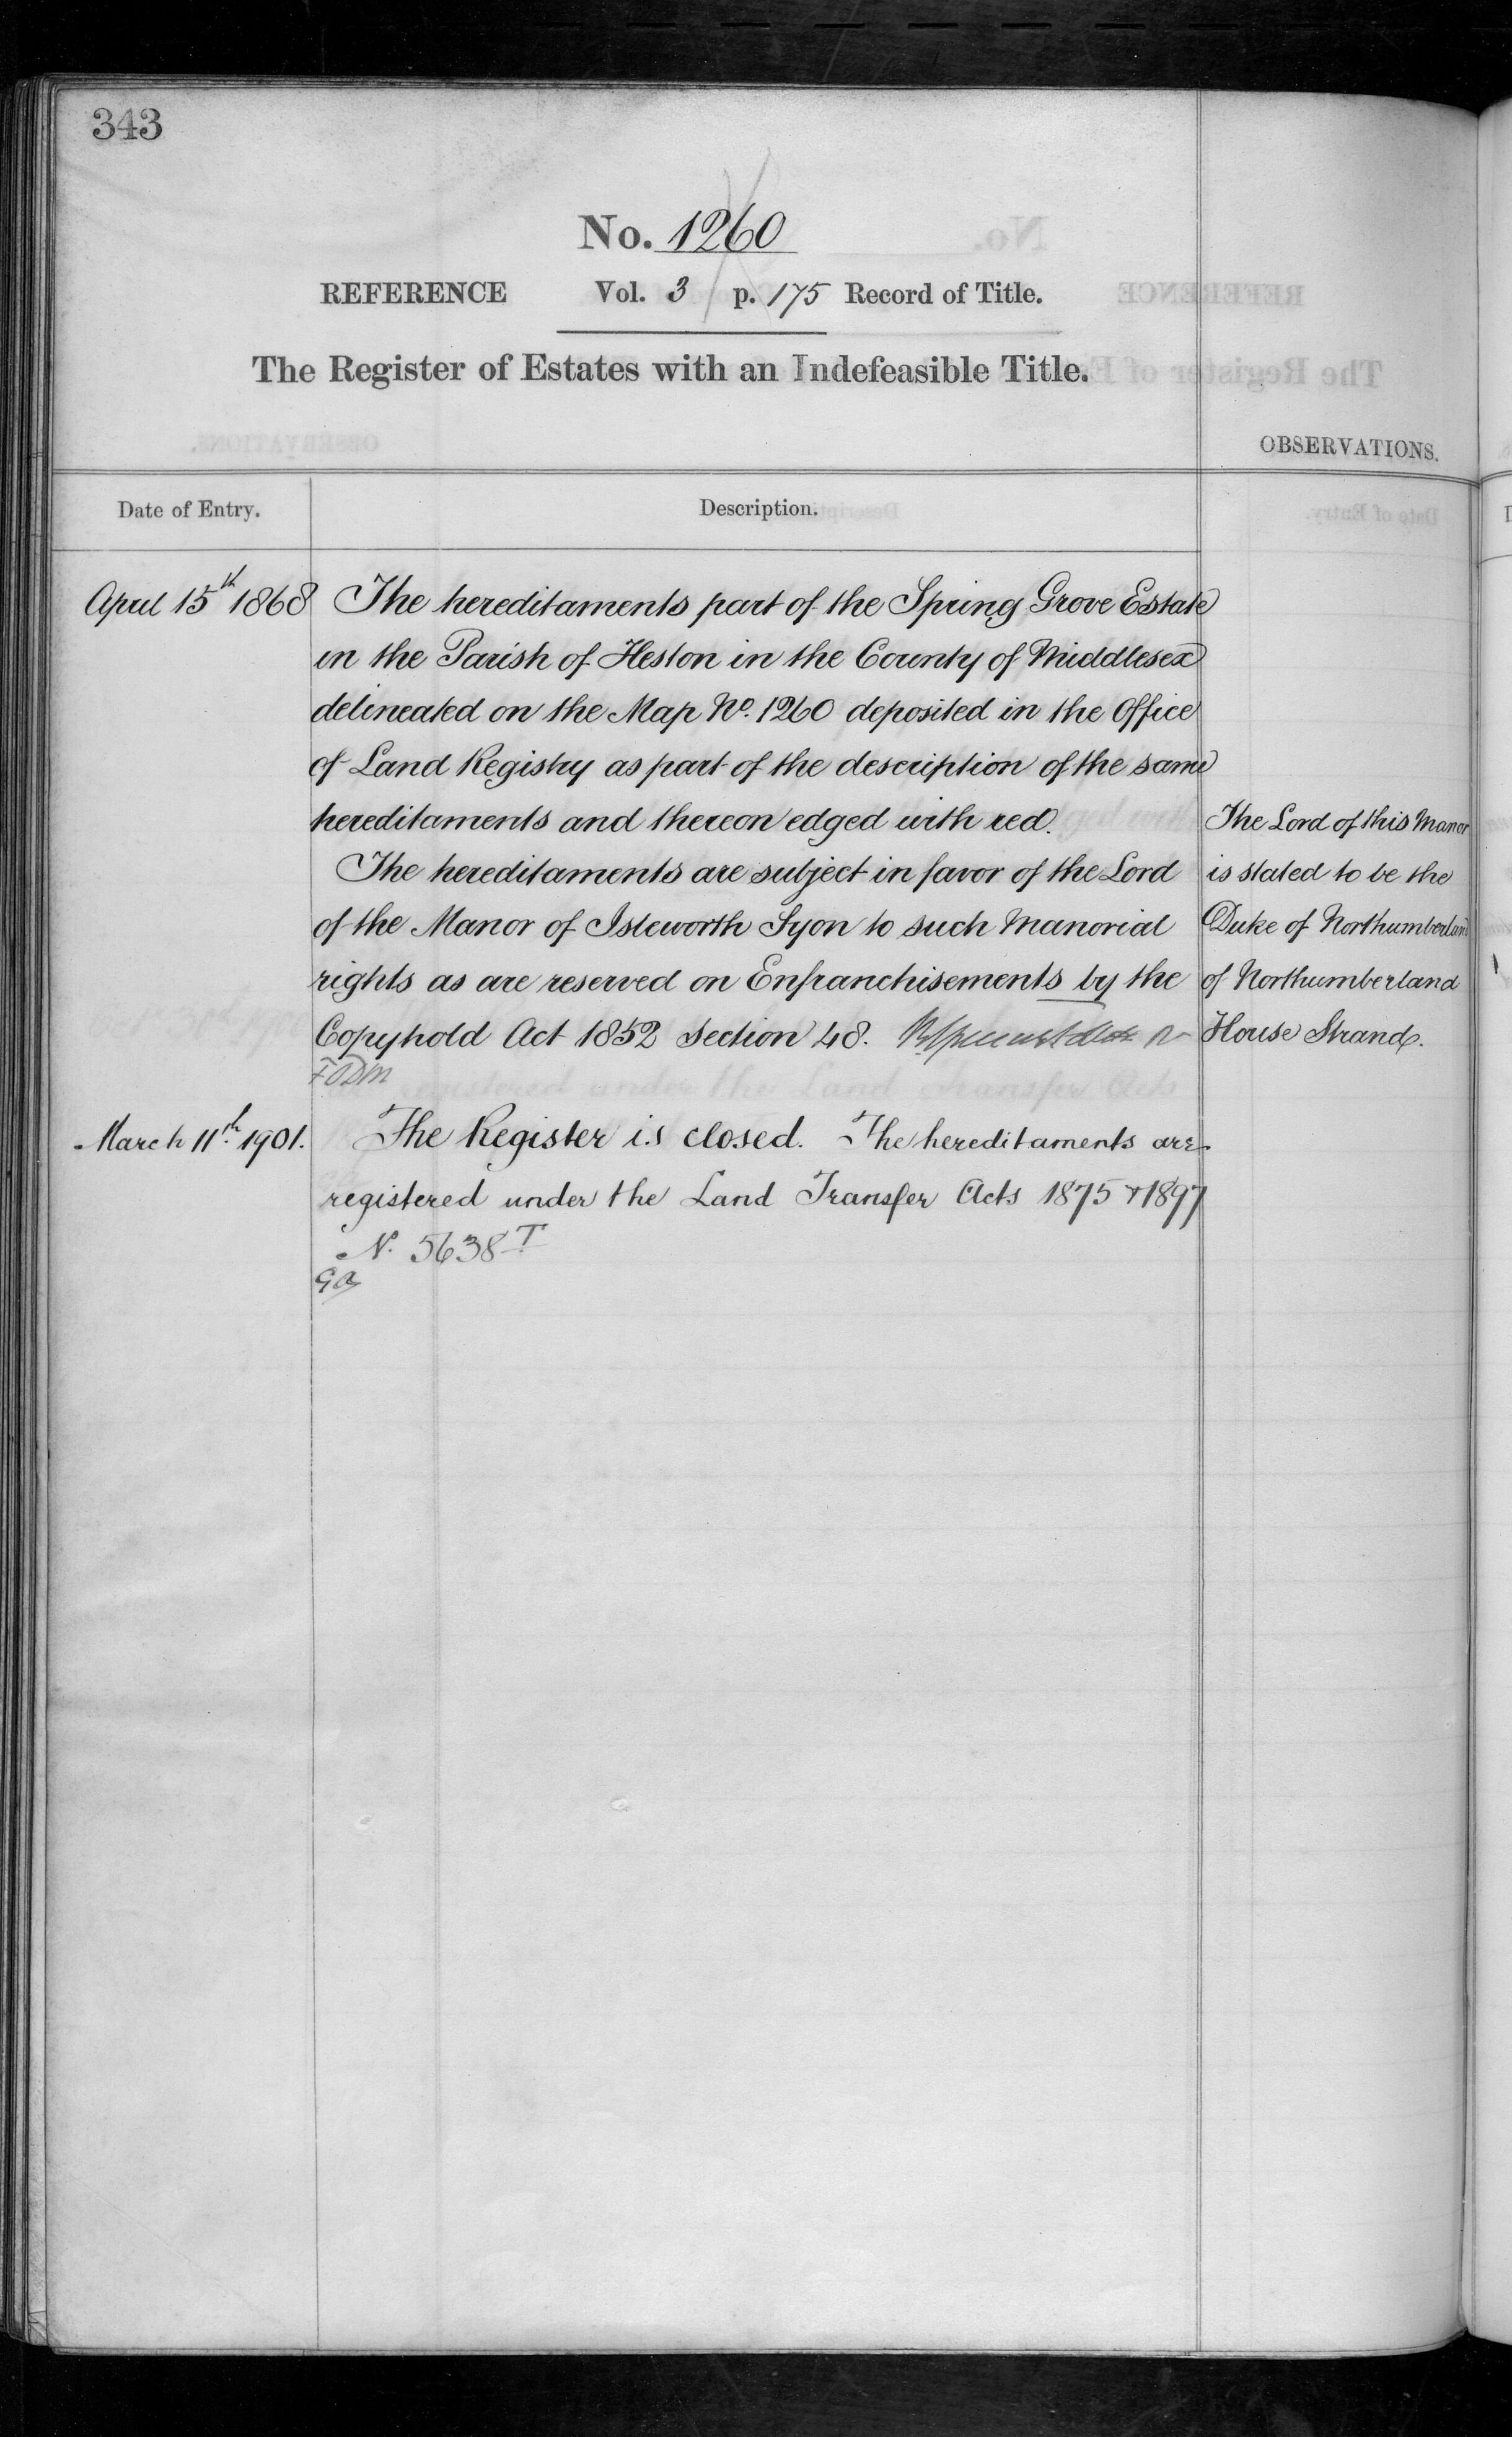 343
No. 1260
REFERENCE Vol. 3 p. 175 Record of Title.
The Register of Estates with an Indefeasible Title.
OBSERVATIONS.
Date of Entry. Description.
April 15th 1868 The hereditaments part of the Spring Grove Estate
in the Parish of Heston in the County of Middlesex
delineated on the Map No. 1260 deposited in the Office
of Land Registry as part of the description of the same
hereditaments and thereon edged with red.
The hereditaments are subject in favor of the Lord
of the Manor of Isleworth Syon to such Manorial
rights as are reserved on Enfranchisements by the
Copyhold Act 1852 Section 48.
The Lord of this Manor
is stated to be the
Duke of Northumberland
of Northumberland
House Strand.
March 11th 1901. The Register is closed. The hereditaments are
registered under the Land Transfer Acts 1875 & 1897
N. 5638 T